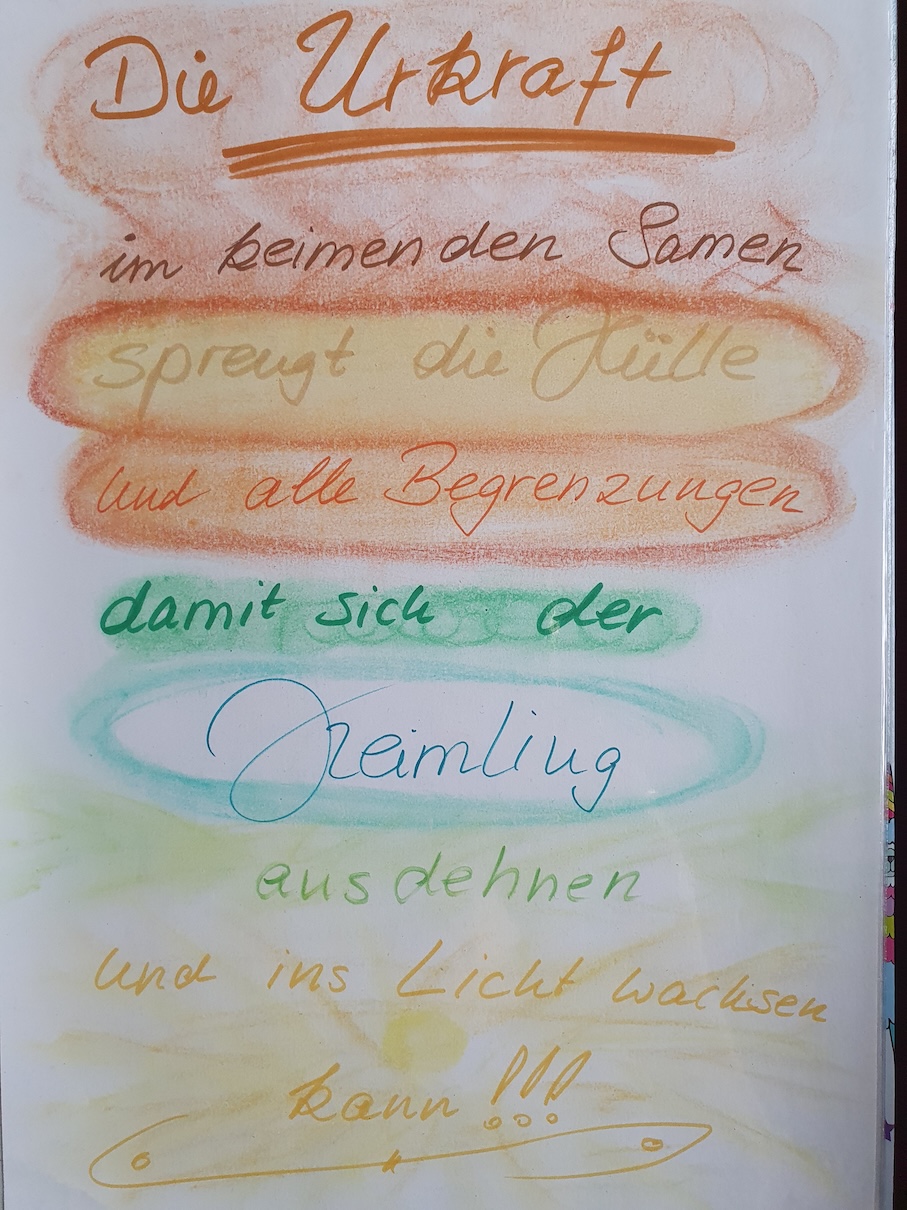 Die Urkraft
im keimenden Samen
sprengt die Hülle
und alle Begrenzungen
damit sich der
Keimling
ausdehnen
und ins Licht wachsen
kann !!!